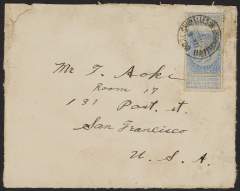 Mr T. Aoki
Room 17
131 Post. st.
San Francisco
U. S. A.